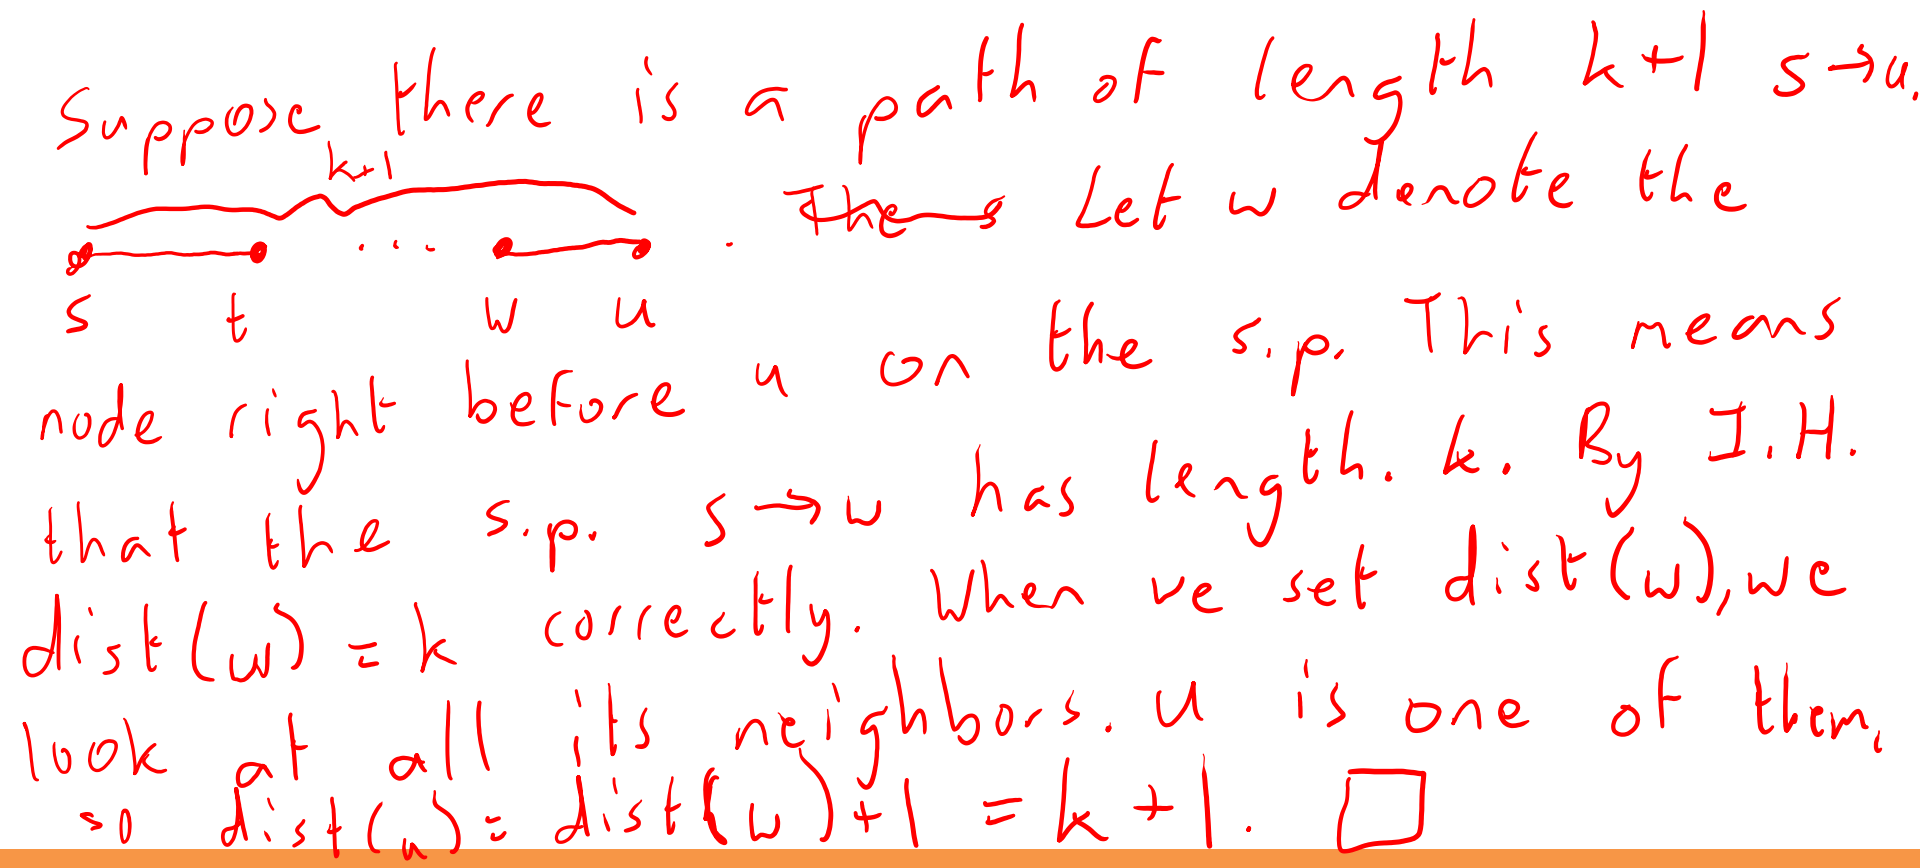 Suppose there is a path of length k+1 s→u.
k+1
. The Let w denote the
s t ... w u
node right before u on the s.p. This means
that the s.p. s→w has length. k. By I.H.
dist(w) = k correctly. When we set dist(w), we
look at all its neighbors. u is one of them,
so dist(u) = dist(w)+1 = k+1. □